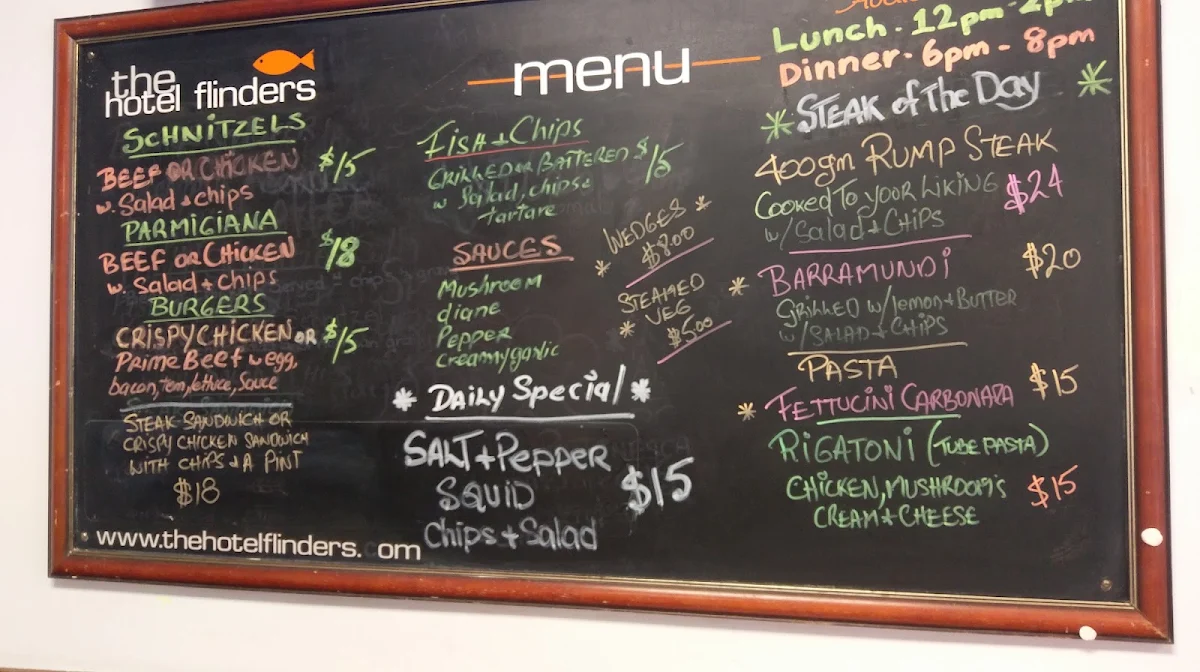 the
hotel flinders
SCHNITZELS
BEEF OR CHICKEN $15
w. Salad + chips
PARMIGIANA
BEEF OR CHICKEN $18
w. Salad + chips
BURGERS
CRISPY CHICKEN OR $15
PRIME BEEF w egg,
bacon, tom, lettuce, Sauce
STEAK SANDWICH OR
CRISPY CHICKEN SANDWICH
WITH CHIPS + A PINT
$18
www.thehotelflinders. om
menu
FISH + Chips
GRILLED OR BATTERED $15
w Salad, chips +
tartare
SAUCES
Mushroom
diane
Pepper
Creamy garlic
* WEDGES *
$8.00
* STEAMED
VEG
$5.00
* DAILY Special *
SALT + PEPPER
SQUID $15
Chips + Salad
Lunch - 12pm - 2pm
Dinner - 6pm - 8pm
* STEAK of The Day *
400gm RUMP STEAK
COOKED TO YOUR LIKING $24
w/ Salad + CHIPS
* BARRAMUNDI $20
GRILLED w/lemon + BUTTER
w/SALAD + CHIPS
PASTA
* FETTUCINI CARBONARA $15
RIGATONI (TUBE PASTA)
CHICKEN, MUSHROOM'S $15
CREAM + CHEESE